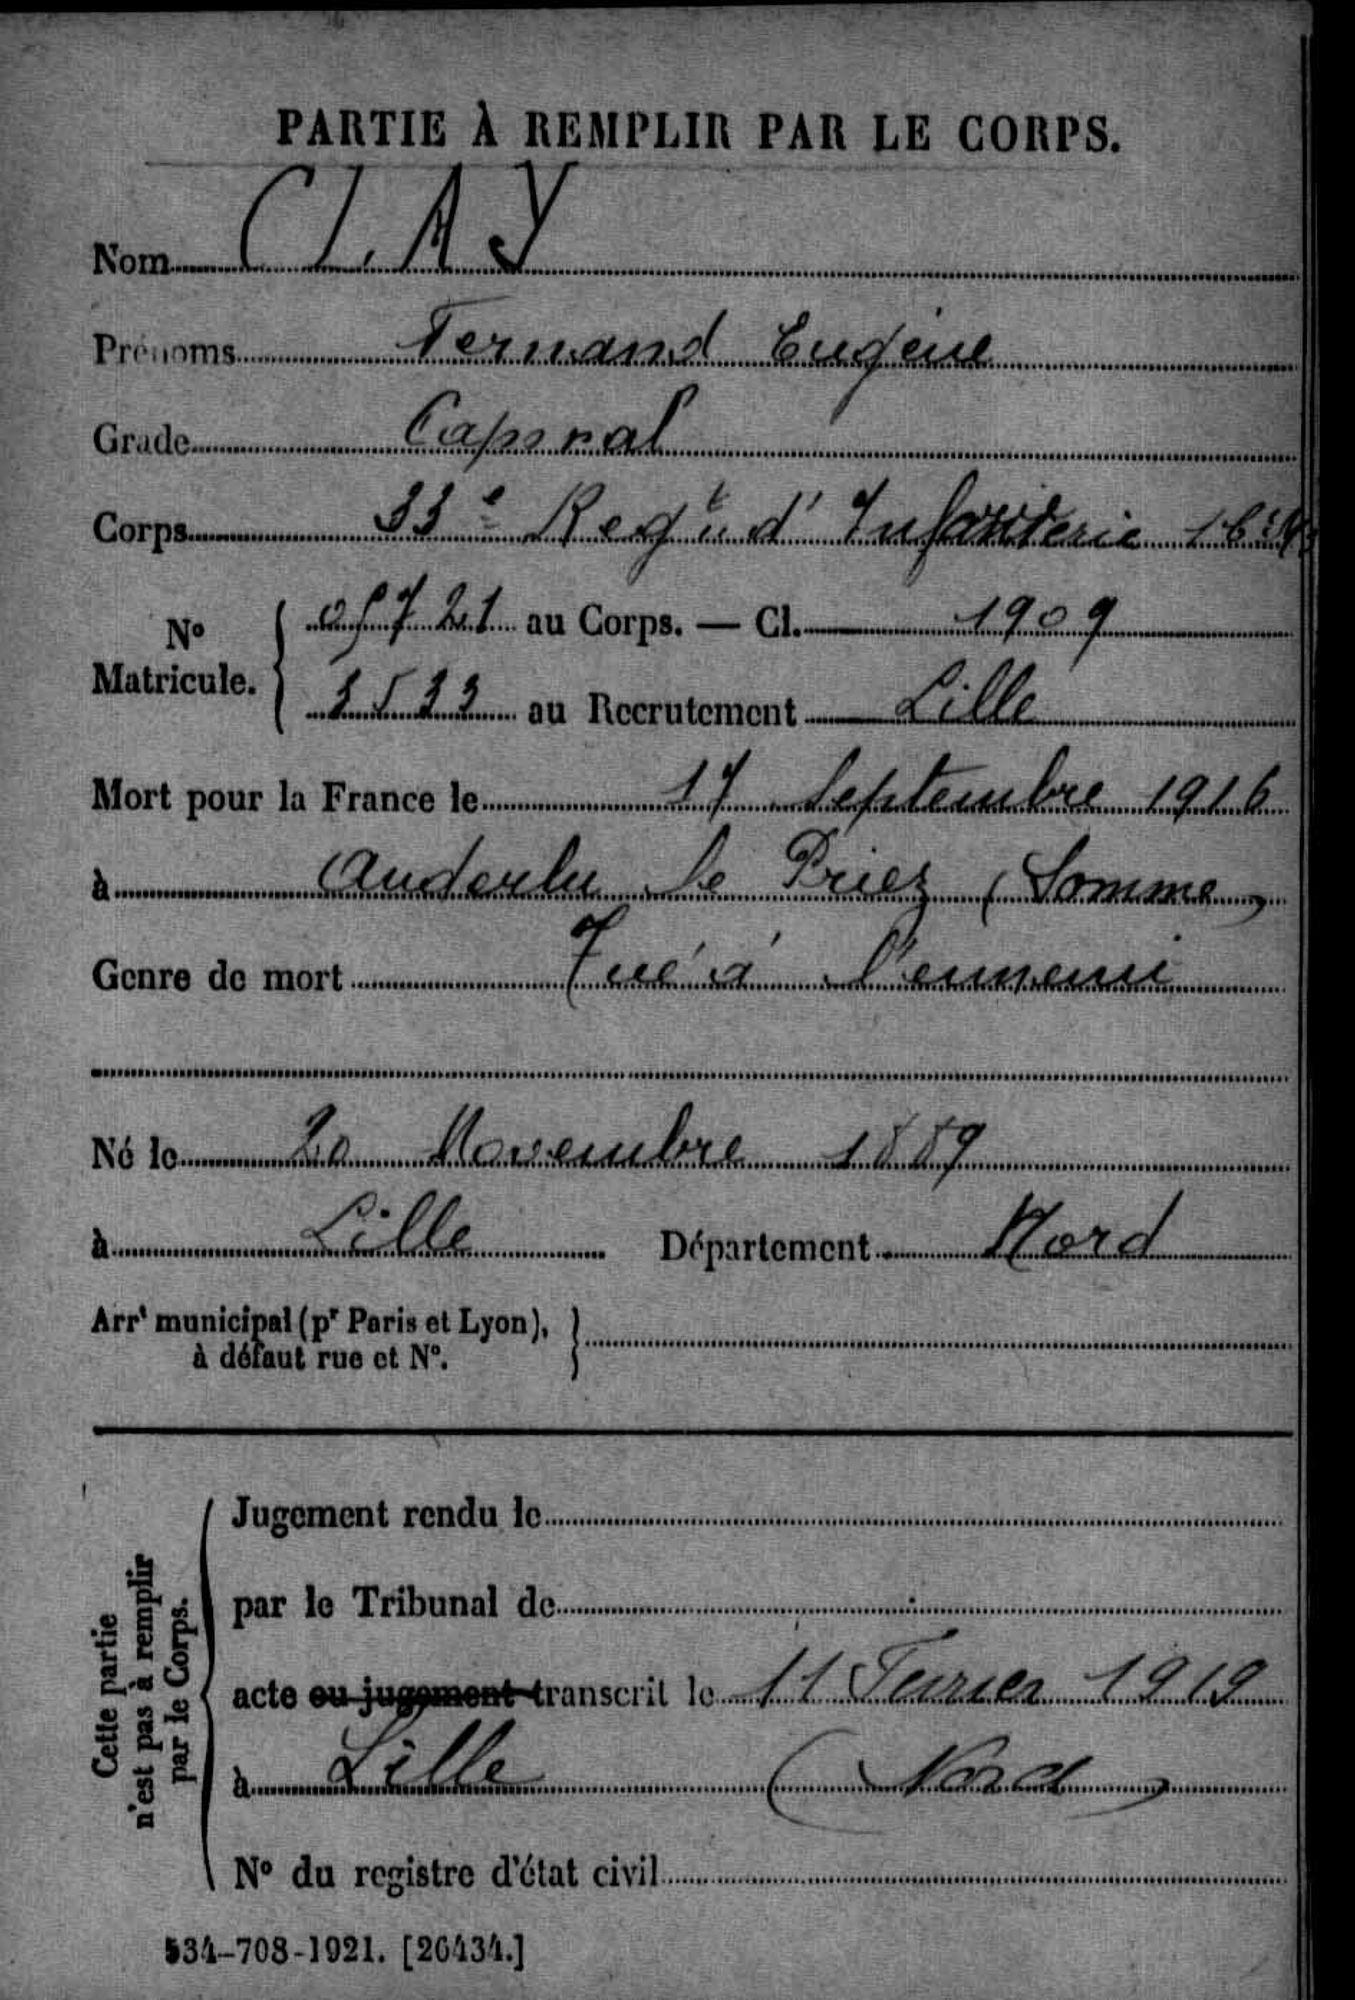 PARTIE À REMPLIR PAR LE CORPS.
Nom CLAY
Prénoms Fernand Eugène
Grade Caporal
Corps 33e Regt d'Infanterie
No Matricule. 05721 au Corps. — Cl. 1909
3533 au Recrutement Lille
Mort pour la France le 17 Septembre 1916
à Anderlu le Priez (Somme)
Genre de mort Tué à l'ennemi
Né le 20 Novembre 1889
à Lille Département Nord
Arrt municipal (pr Paris et Lyon),
à défaut rue et No.
Cette partie
n'est pas à remplir
par le Corps.
Jugement rendu le
par le Tribunal de
acte ou jugement transcrit le 11 Fevrier 1919
à Lille (Nord)
No du registre d'état civil
534-708-1921. [26434.]